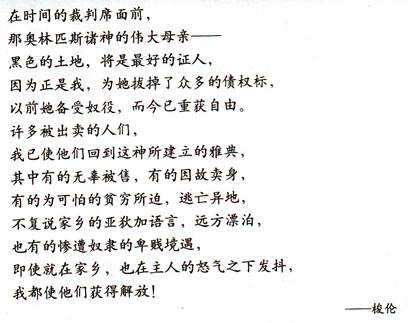 在时间的裁判席面前，
那奥林匹斯诸神的伟大母亲——
黑色的土地，将是最好的证人，
因为正是我，为她拔掉了众多的债权标，
以前她备受奴役，而今已重获自由。
许多被出卖的人们，
我已使他们回到这神所建立的雅典，
其中有的无辜被售，有的因故卖身，
有的为可怕的贫穷所迫，逃亡异地，
不复说家乡的亚狄加语言，远方漂泊，
也有的惨遭奴隶的卑贱境遇，
即使就在家乡，也在主人的怒气之下发抖，
我都使他们获得解放！
——梭伦